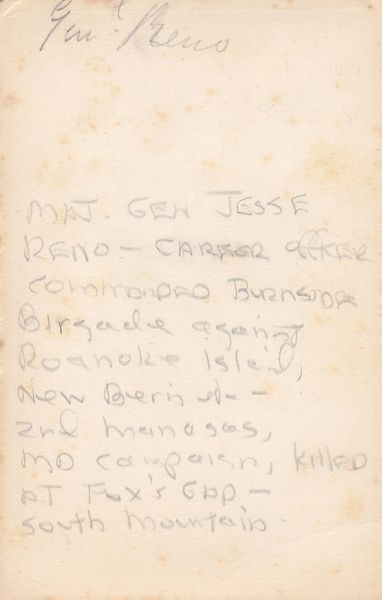 Genl. Reno
MAJ. GEN JESSE
RENO - CAREER OFFICER
COMMANDED BURNSIDE
Birgade against
Roanoke Island,
New Bern
2nd Manasas,
MD Campaign, KILLED
AT Fox's Gap -
South Mountain.